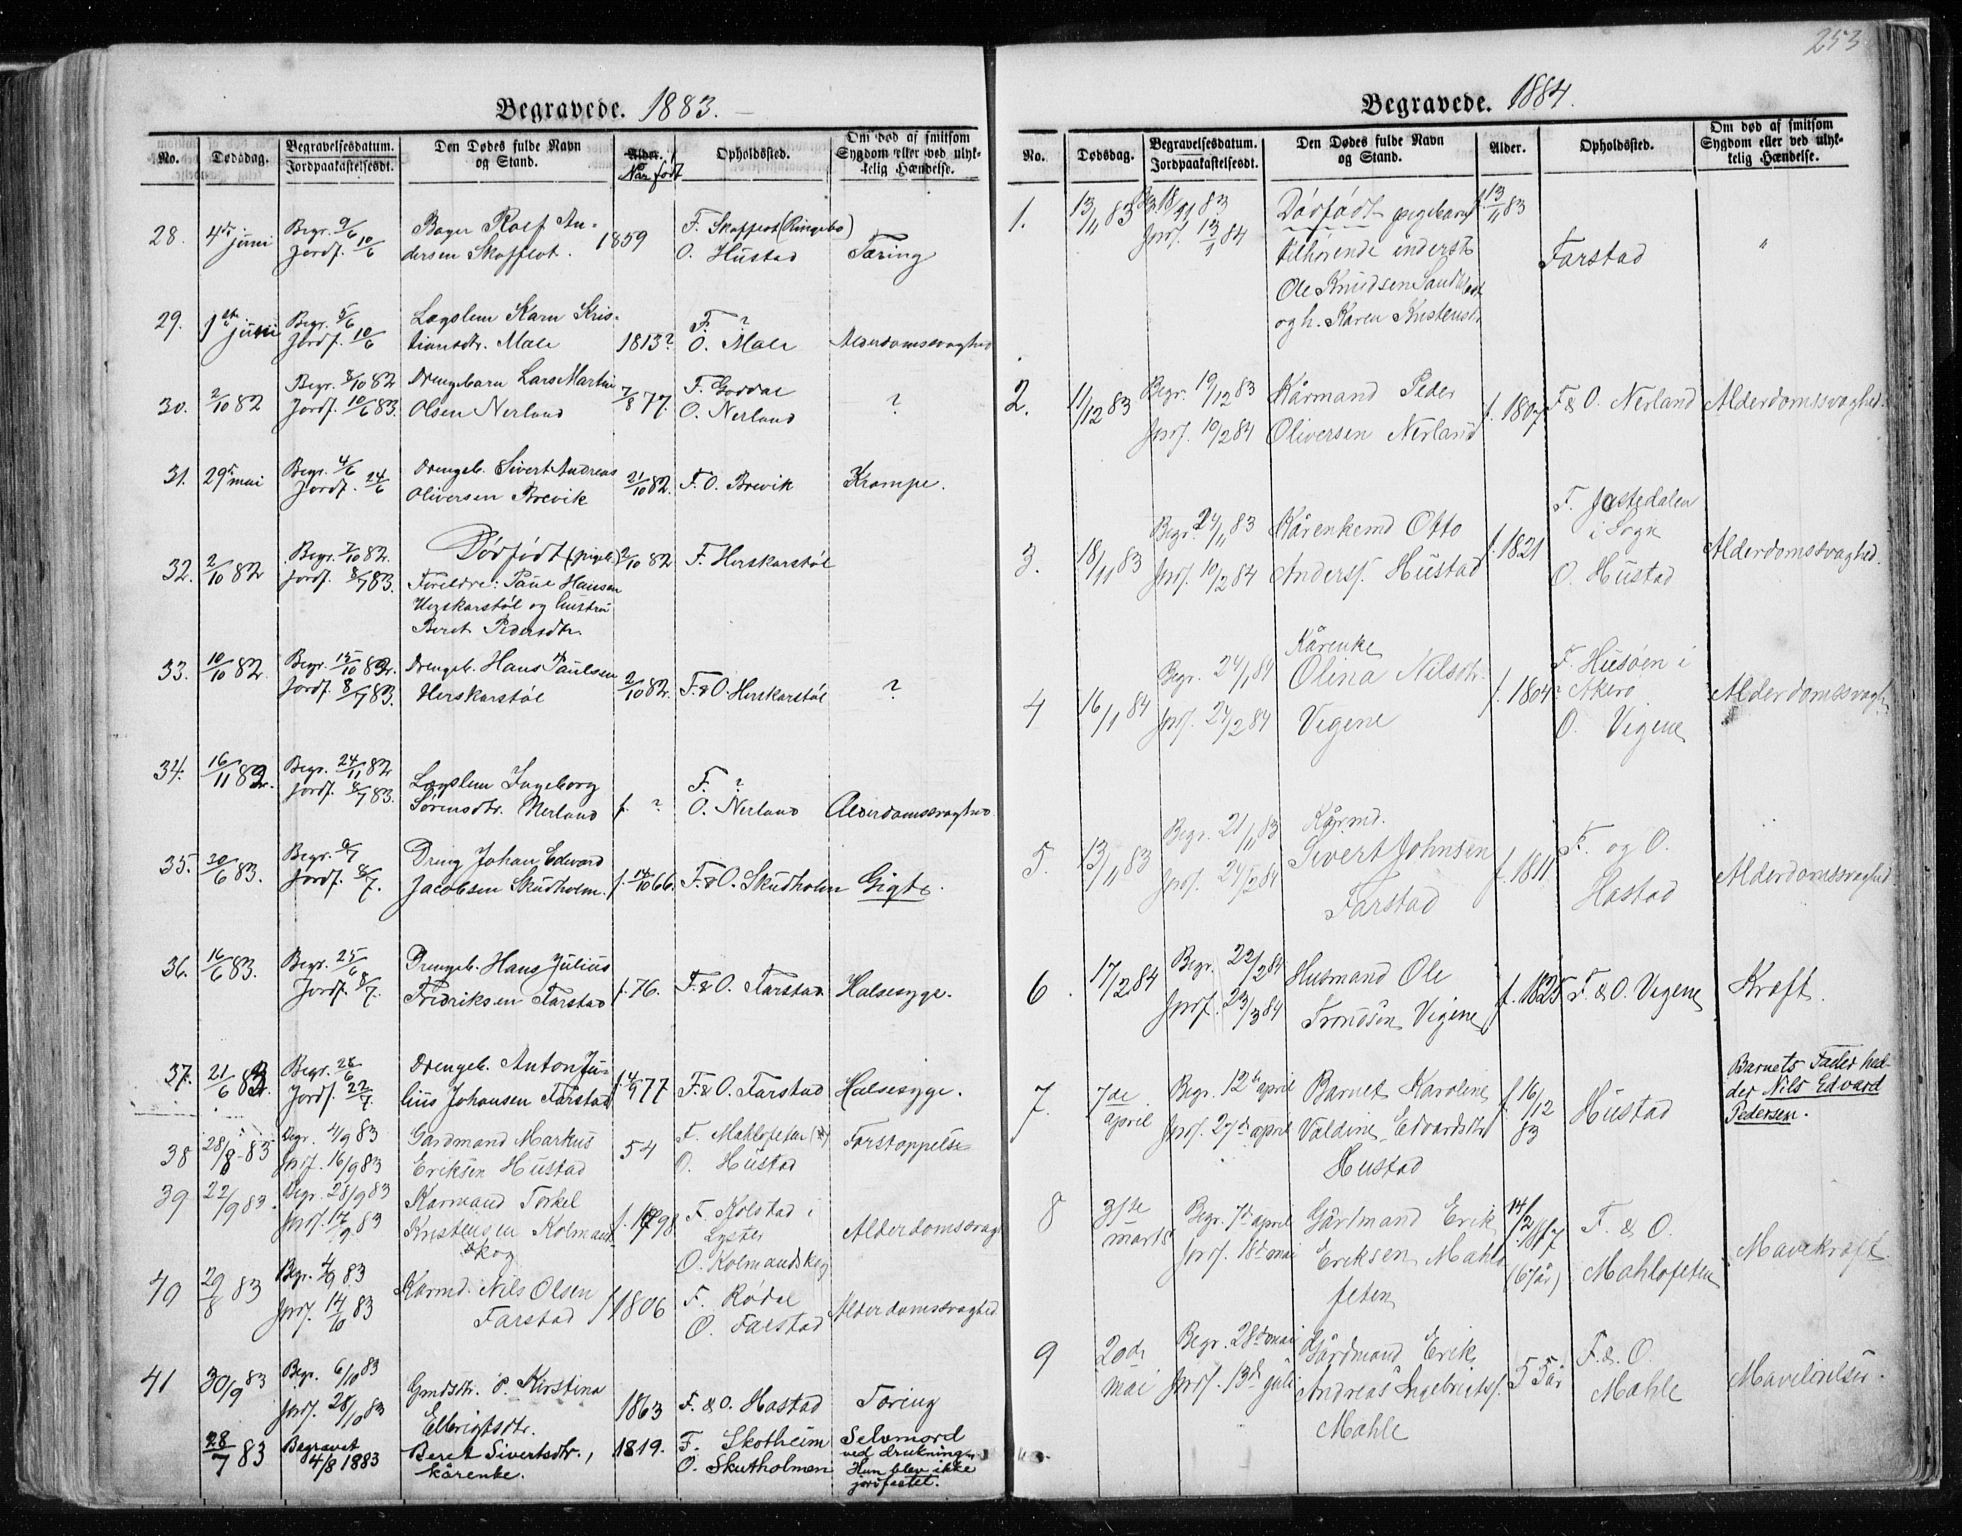 253
Begravede. 1883.
No. Dødsdag. Begravelsesdatum. Jordpaakastelsesdt. Den Dødes fulde Navn og Stand. Alder. Når født Opholdssted. Om død af smitsom Sygdom eller ved ulykkelig Hændelse.
28. 4de juni Begr. 9/6 Bager Rolf An- 1859 F. Skofflot (Ringebo)
Jordf. 10/6 dersen Skofflot. O. Hustad Tæring
29. 1ste juni Begr. 5/6 Lægslem Karn Kris- F. ?
Jordf. 10/6 tiansdtr. Male 1813? O. Male Alderdomssvaghed
30. 2/10 82 Begr. 8/10 82 Drengebarn Lars Martin 7/8 77. F. Gordal
Jordf. 10/6 83. Olsen Nerland O. Nerland ?
31. 29de mai Begr. 4/6 Drengeb. Sivert Andreas
Jordf. 24/6 Oliversen Brevik 21/10 82. F. O. Brevik Krampe.
32. 2/10 82 Begr. 7/10 82. Dødfødt (pigeb.) 2/10 82 F. Herskarstøl
Jordf. 8/7 83. Foreldre: Paul Hansen
Herskarstøl og hustru
Beret Pedersdtr.
33. 10/10 82. Begr. 15/10 82. Drengeb. Hans Paulsen
Jordf. 8/7 83. Herskarstøl 2/10 82. F. & O. Herskarstøl ?
34. 16/11 82. Begr. 24/11 82 Lægslem Ingeborg F. ?
Jordf. 8/7 83. Sørensdtr. Nerland f. ? O. Nerland Alderdomssvaghed.
35. 30/6 83. Begr. 9/7 Dreng Johan Edvard
Jordf. 8/7. Jacobsen Skudholm. f. 14/10 66. F. & O. Skudholm Gigt.
36. 16/6 83. Begr. 25/6 Drengeb. Hans Julius
Jordf. 8/7. Fredriksen Farstad f. 76. F. & O. Farstad Halsesyge.
37. 21/6 83 Begr. 28/6 Drengeb. Anton Ju-
Jordf. 22/7 lius Johansen Farstad 77 F. & O. Farstad Halsesyge.
38 28/8 83 Begr. 4/9 83 Gårdmand Markus 54 F. Mahlefeten
Jordf. 16/9 83 Eriksen Hustad O. Hustad Forstoppelse
39 22/9 83. Begr. 28/9 83 Kårmand Torkel f. 1798 F. Kolstad i
Kristensen Kolmands- Lyster Alderdomssvagh
skog O. Kolmandskog
40 29/8 83 Begr. 4/9 83 Kårmd. Nils Olsen f. 1806 F. Rødal
Jordf. 14/10 83 Farstad O. Farstad Alderdomssvaghed
41 30/9 83 Begr. 6/10 83 Kirstina
Jordf. 28/10 83 Elbrigtsdtr. 1863 F. & O. Hostad Tæring
28/7 83 Begravet 4/8 1883 Beret Sivertsdtr., kårenke. 1819. F. Skotheim Selvmord
O. Skutholmen ved drukning.
Hun blev ikke
jordfæstet.
Begravede. 1884.
No. Dødsdag. Begravelsesdatum. Jordpaakastelsesdt. Den Dødes fulde Navn og Stand. Alder. Opholdssted. Om død af smitsom Sygdom eller ved ulykkelig Hændelse.
1. 13/11 83 Begr. 18/11 83 Dødfødt pigebarn f. 13/11 83
Jordf. 13/1 84 tilhørende inderst Farstad "
Ole Knudsen
og h. Karen Kristensdtr.
2. 11/12 83 Begr. 19/12 83 Kårmand Peder f. 1807 F & O. Nerland Alderdomssvaghed.
Jordf. 10/2 84 Oliversen Nerland
3. 18/11 83 Begr. 24/11 83 Kårenkemd Otto f. 1821 F. Jostedalen
i Sogn
Jordf. 10/2 84 Anders. Hustad O. Hustad Alderdomssvaghed.
4 16/1 84 Begr. 24/1 84 Kårenke
Olina Nilsdtr. f. 1804 F. Husøen i
Akerø
Jordf. 24/2 84 Vigene O. Vigene Alderdomssvagh.
5. 13/11 83 Begr. 21/11 83 Kårmd.
Jordf. 24/2 84 Sivert Johnsen f. 1811 F. og O.
Farstad Hostad Alderdomssvaghed
6 17/2 84 Begr. 22/2 84 Husmand Ole f. 1825 F. & O. Vigene Kræft.
Jordf. 23/3 84 Trondsen Vigene
7. 7de april Begr. 12te april Barnet Karoline f. 16/12 83 Hustad Barnets Fader hed-
Jordf. 27de april Valdine Edvardsdtr der Nils Edvard
Hustad Pedersen.
8 31ste marts Begr. 7de april Gårdmand Erik 14/2 1817 F. & O.
Jordf. 18de mai Eriksen Mahle- (67år) Mahlefeten Mavekræft
feten
9 20de mai Begr. 28de mai Gårdmand Erik 55år F. & O.
Jordf. 13de juli Andreas Ingebrigts. Mahle Mavelidelser.
Mahle